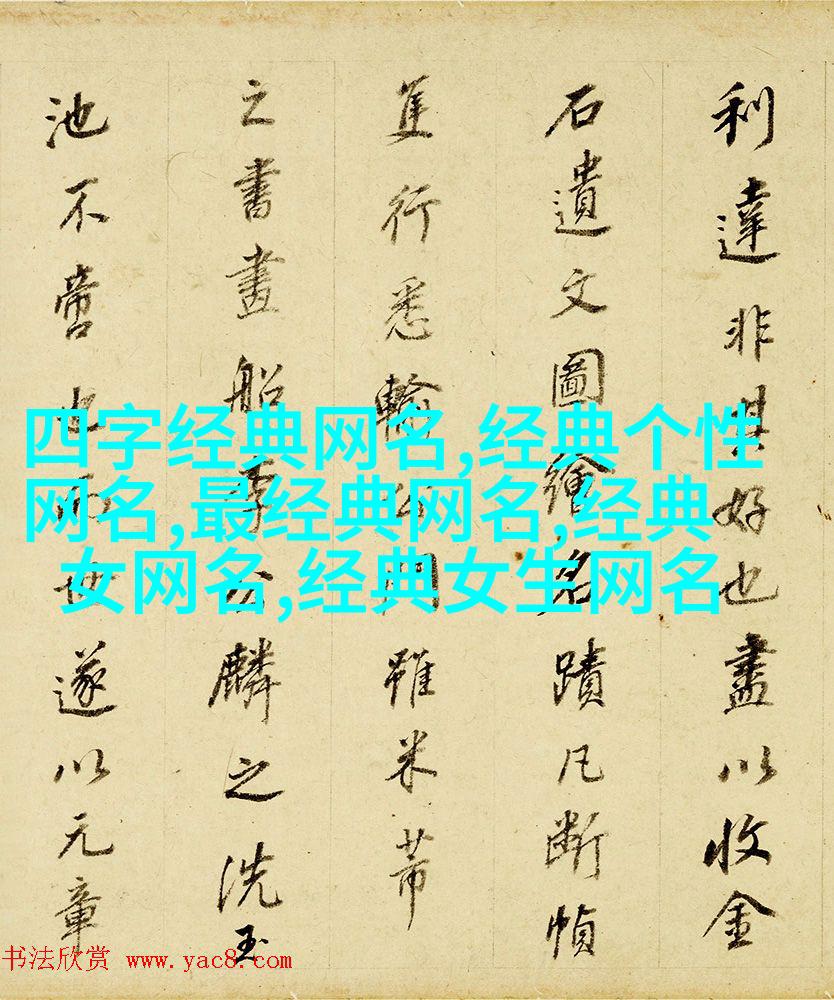 利達非其好也盡以收金
石遺文圖繪名蹟凡断幀
隻行悉輸公門雖米芾
之書畫船李公麟之洗玉
池不啻也而世遂以元章
四字经典网名,经典个性
网名,最经典网名,经典
女网名,经典女生网名
书法欣赏 www.yac8.com